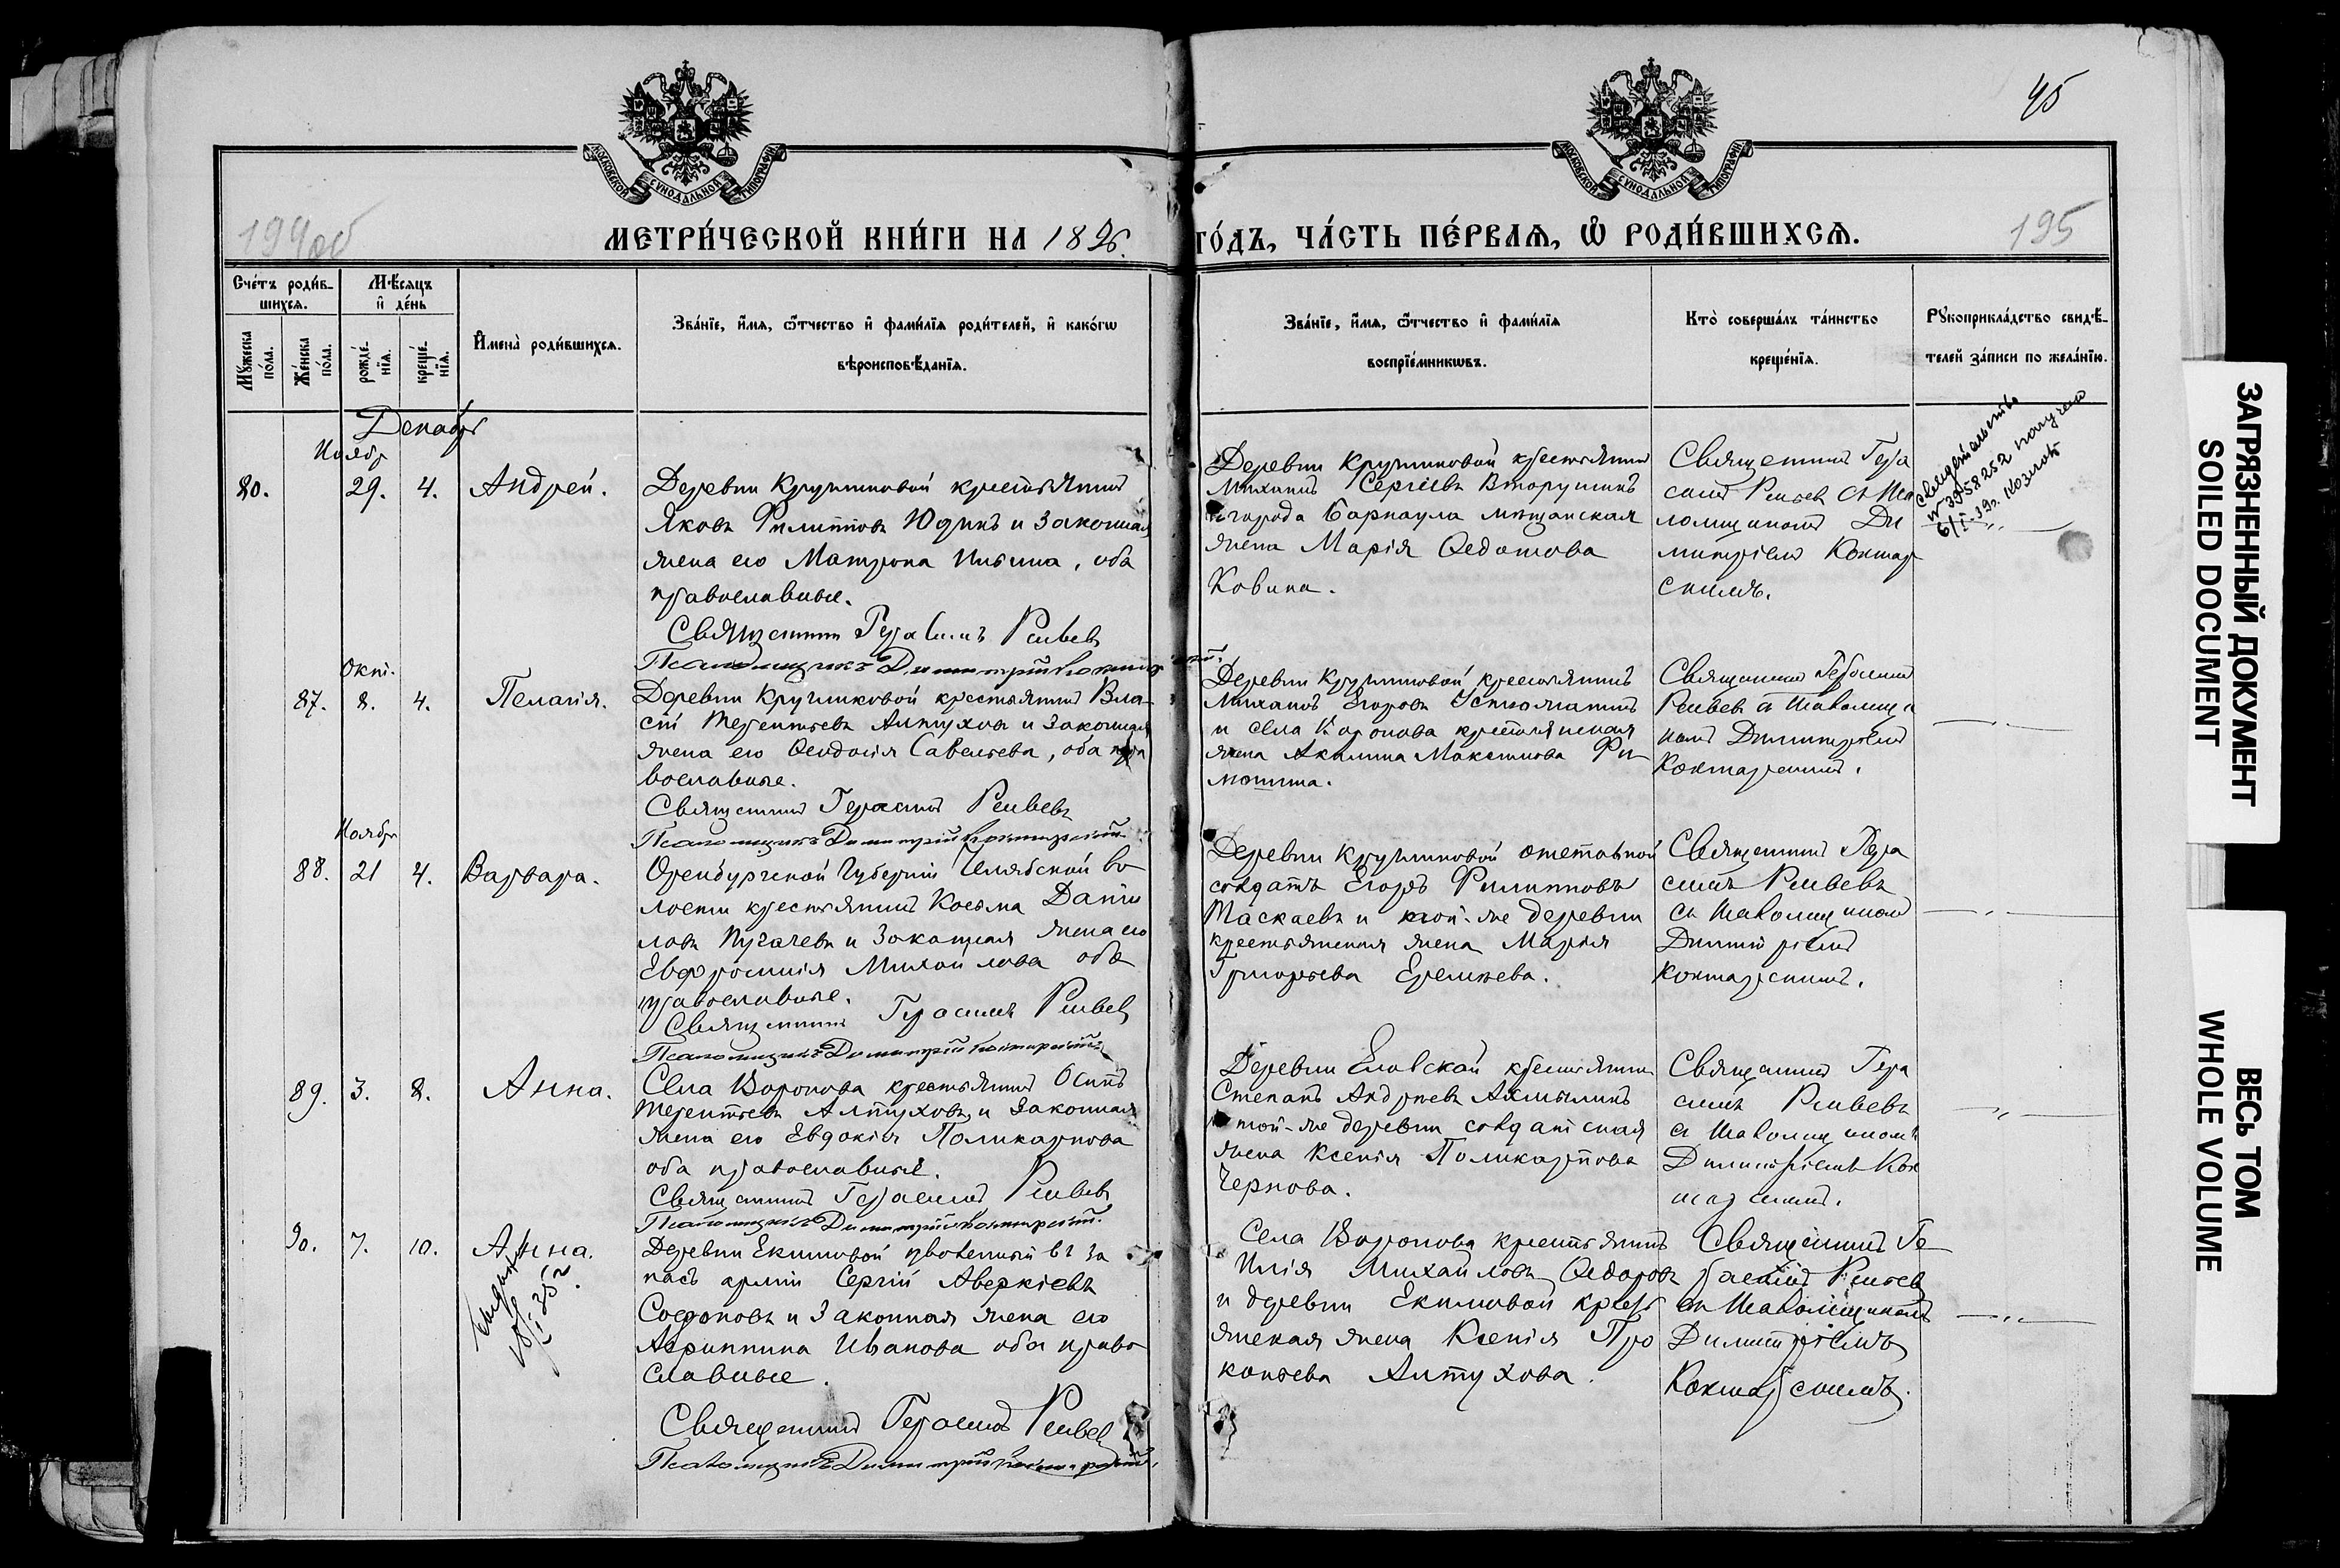 45
МОСКОВСКОЙ СУНОДАЛЬНОЙ ТИПОГРАФІИ
МОСКОВСКОЙ СУНОДАЛЬНОЙ ТИПОГРАФІИ
194об
195
МЕТРИ́ЧЕСКОЙ КНИ́ГИ НА 1896. ГО́ДЪ, ЧА́СТЬ ПЕ́РВАѦ, Ѡ҆ РОДИ́ВШИХСѦ.
Сче́тъ роди́в-
шихся.
Мѣ́сяцъ
и҆ де́нь
Мꙋ́жеска по́ла.
Же́нска по́ла.
рожде́-
нїѧ.
креще́-
нїѧ.
И҆мена̀ роди́вшихсѧ.
Зва́нїе, и҆́мѧ, ѻ҆́тчество и҆ фами́лїѧ роди́телей, и҆ како́гѡ
вѣроисповѣ́данїѧ.
Зва́нїе, и҆́мѧ, ѻ҆́тчество и҆ фами́лїѧ
воспрїе́мникѡвъ.
Кто̀ соверша́лъ та́инство
креще́нїѧ.
Рꙋкоприкла́дство свидѣ́-
телей за́писи по жела́нїю.
Декабр
Ноябр
80.
29.
4.
Андрей.
Деревни Кругликовой крестьянинъ
Яковъ Филипповъ Юдинъ и законная
жена его Матрона Ильина, оба
православные.
Священникъ Герасимъ
Псаломщикъ Димитрій
Деревни Кругликовой крестьянинъ
Михаилъ Сергіевъ Вторушинъ
и города Барнаула мѣщанская
жена Марія Ѳедотова
Ковина.
Священникъ Гера
симъ съ Пса
ломщикомъ Ди
митріемъ Кокшар
скимъ.
Свидетельство
№ 3958252 получено
6/I-39г. Козлов
Окт.
87.
8.
4.
Пелагія.
Деревни Кругликовой крестьянинъ Вла
сій Терентьевъ Алтуховъ и законная
жена его Ѳеодосія Савельева, оба пра
вославные.
Священникъ Герасимъ
Псаломщикъ Димитрій
Деревни Кругликовой крестьянинъ
Михаилъ Егоровъ
и села Воронова крестьянская
жена Акилина Максимова Фи
Священникъ Герасимъ
съ Псаломщи
комъ Димитріемъ
Кокшарскимъ.
Ноябр
88.
21
4.
Варвара.
Оренбургской Губерніи Челябской во
лости крестьянинъ Косьма Даніи
ловъ Пугачевъ и законная жена его
Евфросинія Михайлова оба
православные.
Священникъ Герасимъ
Псаломщикъ Димитрій
Деревни Кругликовой отставной
солдатъ Егоръ Филипповъ
Таскаевъ и той-же деревни
крестьянская жена Марія
Григорьева Еремѣева.
Священникъ Гера
симъ
съ Псаломщикомъ
Димитріемъ
Кокшарскимъ.
89.
3.
8.
Анна.
Села Воронова крестьянинъ Осипъ
Терентьевъ Алтуховъ и законная
жена его Евдокія Поликарпова
оба православные.
Священникъ Герасимъ
Псаломщикъ Димитрій
Деревни Еловской крестьянинъ
Степанъ Андреевъ
и той-же деревни солдатская
жена Ксенія Поликарпова
Чернова.
Священникъ Гера
симъ
съ Псаломщикомъ
Димитріемъ Кок
шарскимъ.
90.
7.
10.
Анна.
Деревни Екимовой уволенный въ за
пасъ арміи Сергій Аверкіевъ
Софоновъ и законная жена его
Агриппина Иванова оба право
славные.
Священникъ Герасимъ
Псаломщикъ Димитрій
Села Воронова крестьянинъ
Илія Михаиловъ Ѳедоровъ
и деревни Екимовой кресть
янская жена Ксенія Про
копьева Алтухова.
Священникъ Ге
расимъ
съ Псаломщикомъ
Димитріемъ
Кокшарскимъ.
ЗАГРЯЗНЕННЫЙ ДОКУМЕНТ
SOILED DOCUMENT
ВЕСЬ ТОМ
WHOLE VOLUME